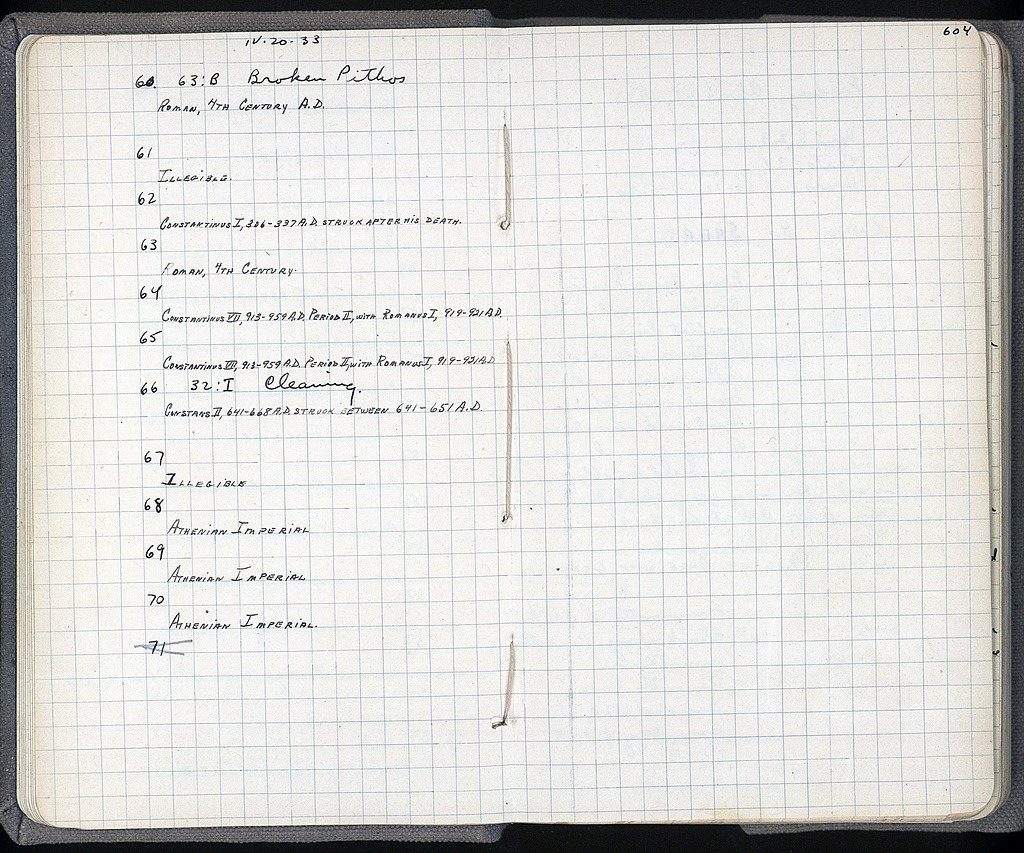 IV·20·33
604
60. 63:B Broken Pithos
ROMAN, 4TH CENTURY A.D.
61
ILLEGIBLE.
62
CONSTANTINUS I, 306-337 A.D. STRUCK AFTER HIS DEATH.
63
ROMAN, 4TH CENTURY.
64
CONSTANTINUS VII, 913-959 A.D. PERIOD II, WITH ROMANUS I, 919-921 A.D.
65
CONSTANTINUS VII, 913-959 A.D. PERIOD II, WITH ROMANUS I, 919-921 A.D
66 32:I Cleaning.
CONSTANS II, 641-668 A.D. STRUCK BETWEEN 641-651 A.D.
67
ILLEGIBLE
68
ATHENIAN IMPERIAL
69
ATHENIAN IMPERIAL
70
ATHENIAN IMPERIAL.
71